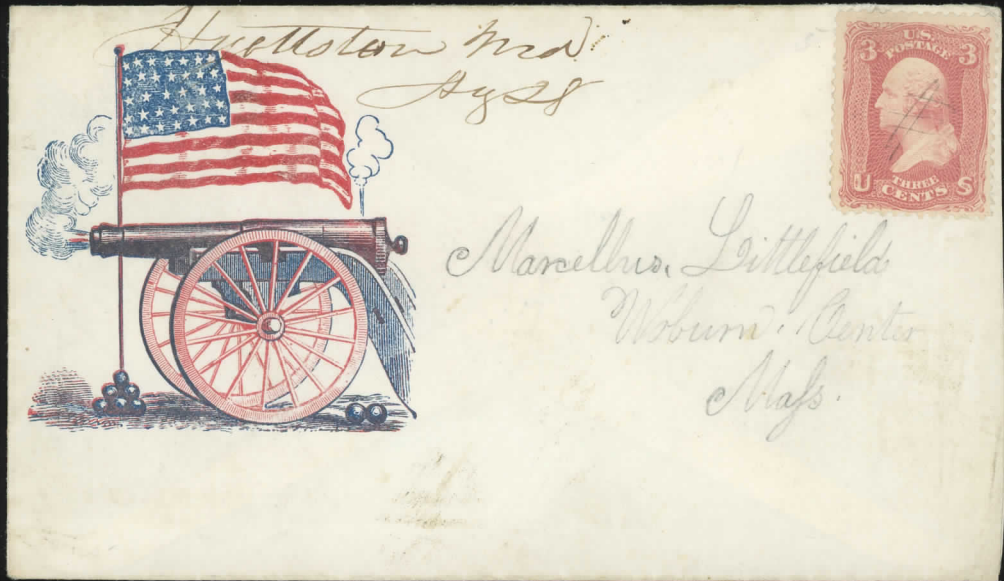 Hyattstown Md
3 U.S. POSTAGE 3
THREE
U CENTS S
Marcellus, Littlefield
Woburn. Center
Mass.